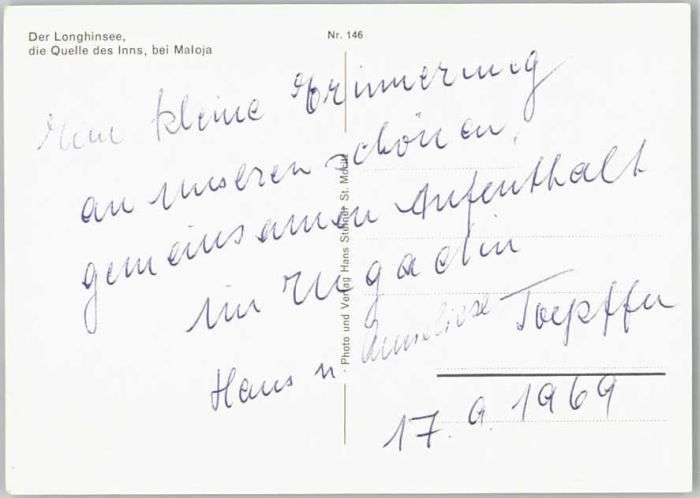 Der Longhinsee,
die Quelle des Inns, bei Maloja
Nr. 146
Eine kleine Erinnerung
an unseren schönen,
gemeinsamen Aufenthalt
im Engadin
Hans u Anneliese Toepffer
17.9.1969
Photo und Verlag Hans Steiner St. Moritz